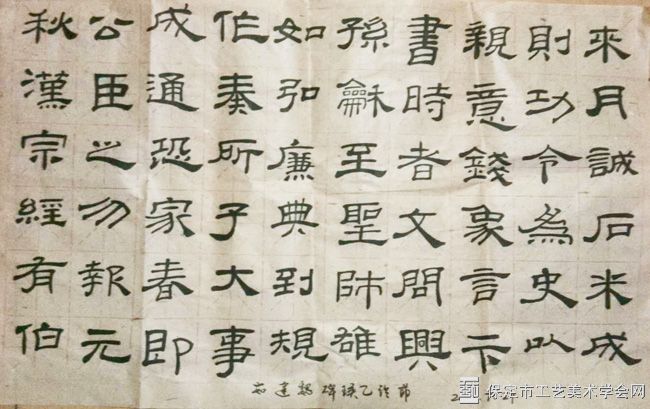 来月誠石米成
則功令為史以
親意錢象言下
書時者文問興
孫龢至聖師雄
如弘廉典到規
作奏所子大事
成通恐家春即
公臣之勿報元
秋漢宗經有伯
保定市工艺美术学会网